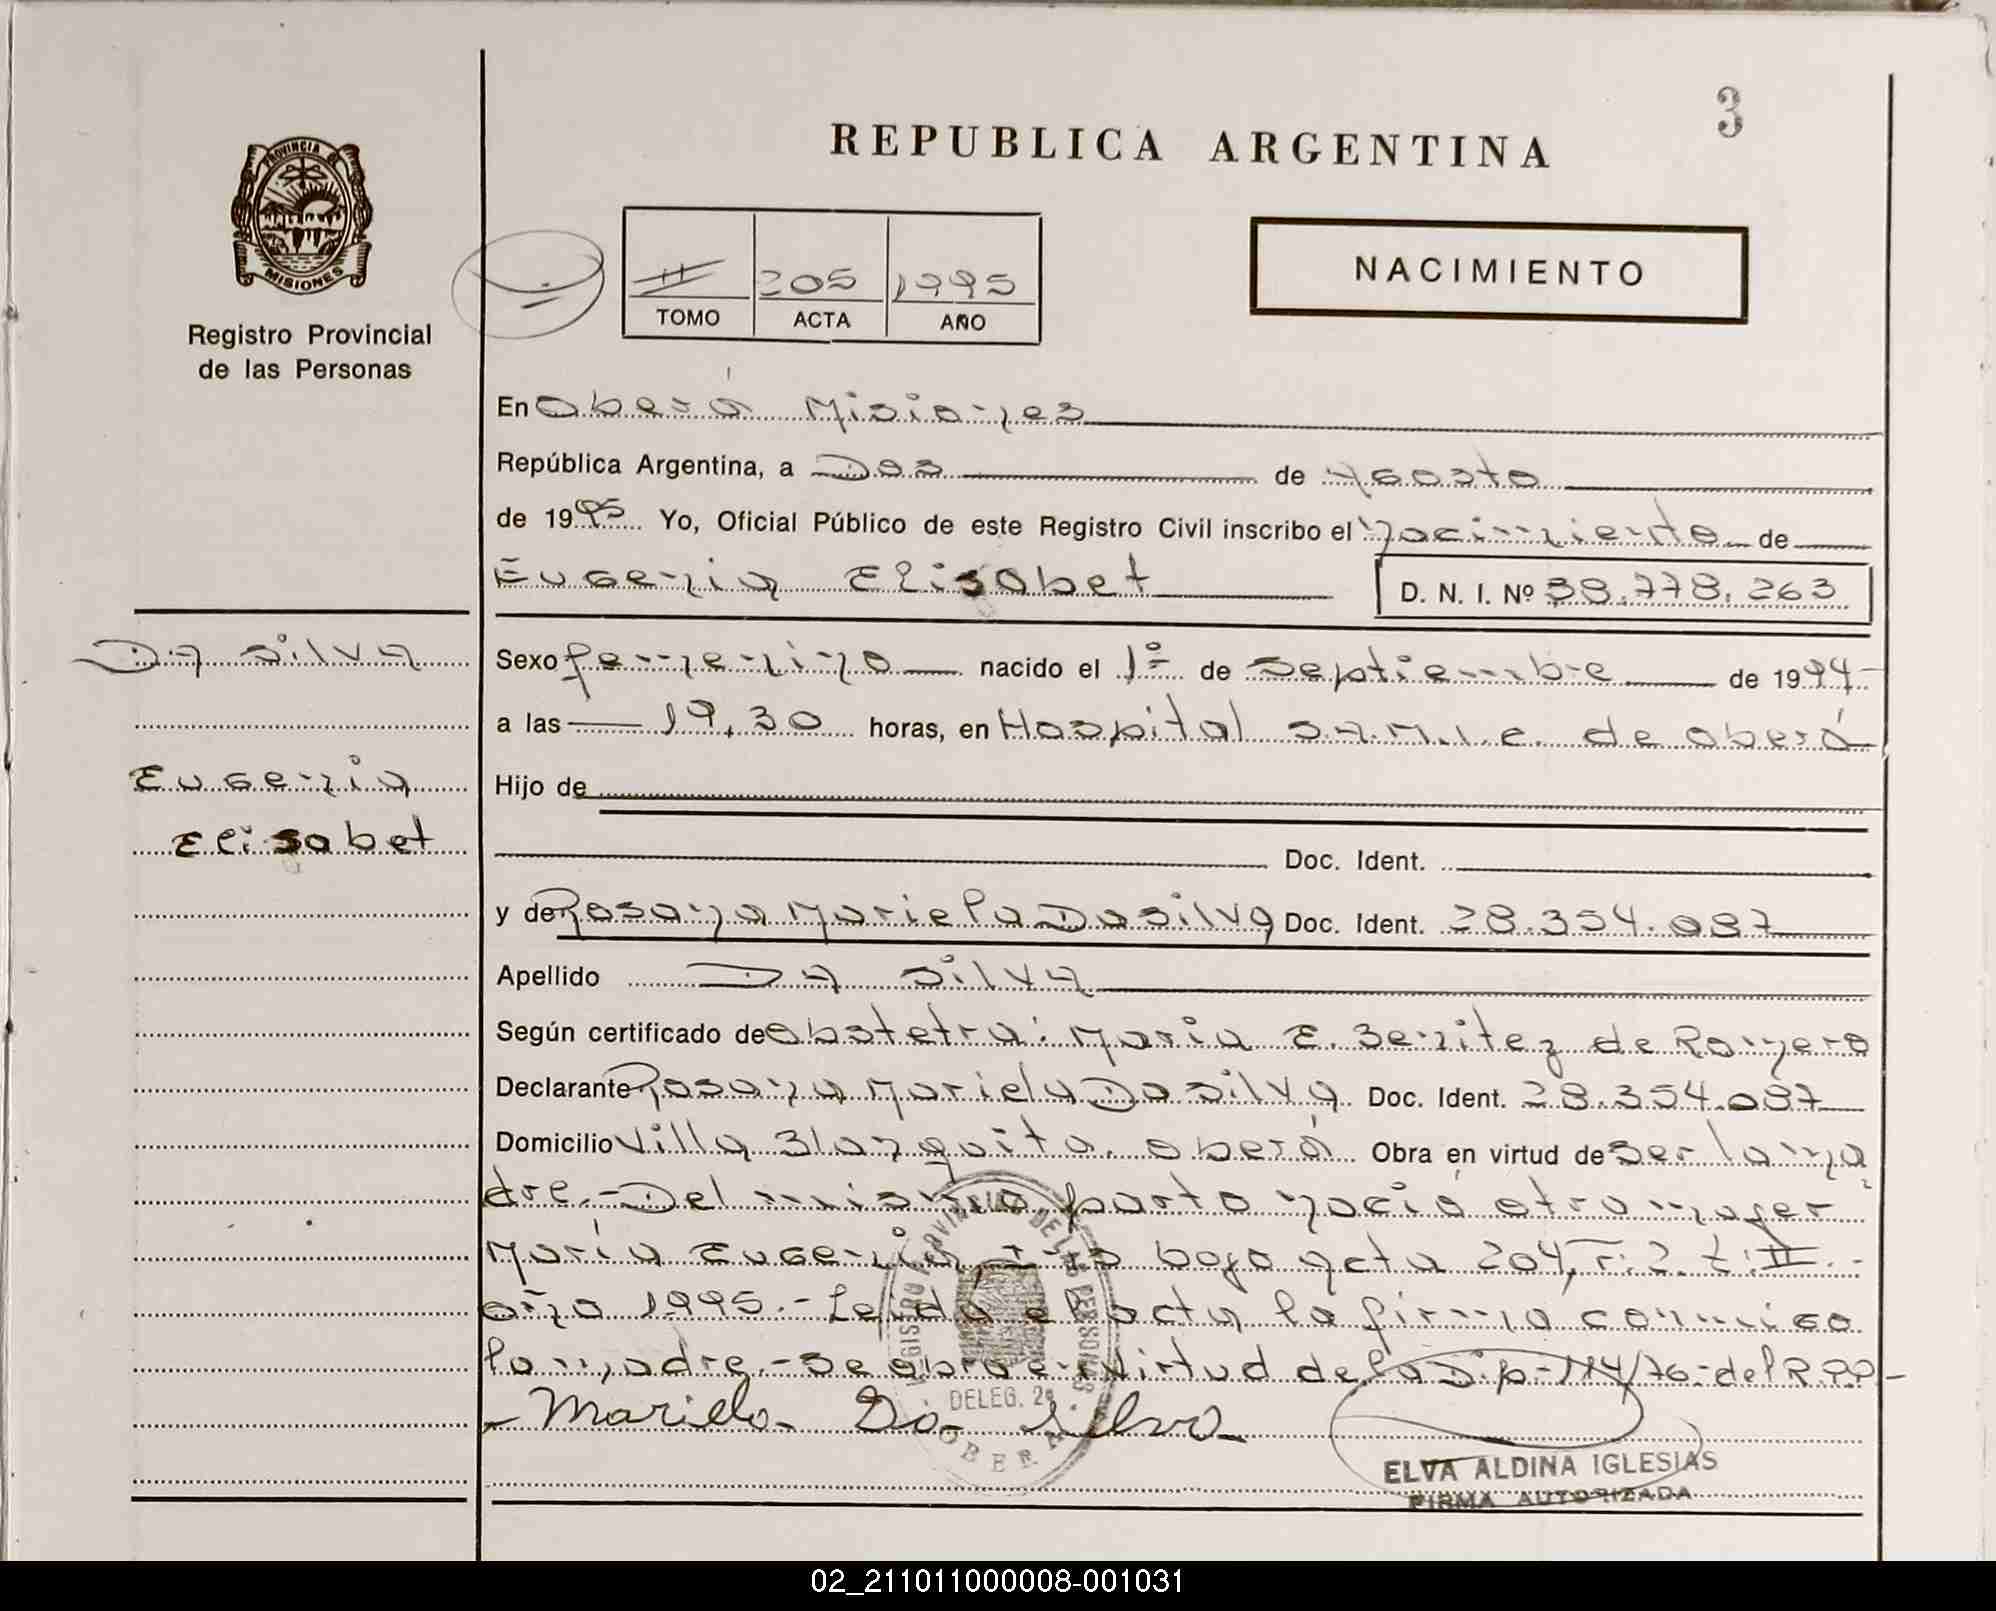 3
REPUBLICA ARGENTINA
PROVINCIA DE
MISIONES
Registro Provincial
de las Personas
II 205 1995
TOMO ACTA AÑO
NACIMIENTO
En Oberá Misiones
República Argentina, a Dos de Agosto
de 1995 Yo, Oficial Público de este Registro Civil inscribo el Nacimiento de
Eugenia Elisabet D. N. I. Nº 38.778.263
Da Silva
Eugenia
Elisabet
Sexo femenino nacido el 1º de Septiembre de 1994
a las 19,30 horas, en Hospital S.A.M.I.C. de Oberá
Hijo de
Doc. Ident.
y de Rosana Mariela Da silva Doc. Ident. 28.354.087
Apellido Da Silva
Según certificado de Obstetra: Maria E. Benitez de Romero
Declarante Rosana Mariela Da silva Doc. Ident. 28.354.087
Domicilio Villa Blanquita. Oberá Obra en virtud de ser la ma
dre.- Del mismo parto nació otra mujer
María Eugenia, bajo acta 204, T: II.-
año 1995.- Leida el acta la firma conmigo
la madre.- Se obra en virtud de la Dip-114/76-del R.P.P.-
Mariela Da Silva
REGISTRO PROVINCIAL DE LAS PERSONAS
DELEG. 2ª
OBERA
ELVA ALDINA IGLESIAS
FIRMA AUTORIZADA
02_211011000008-001031